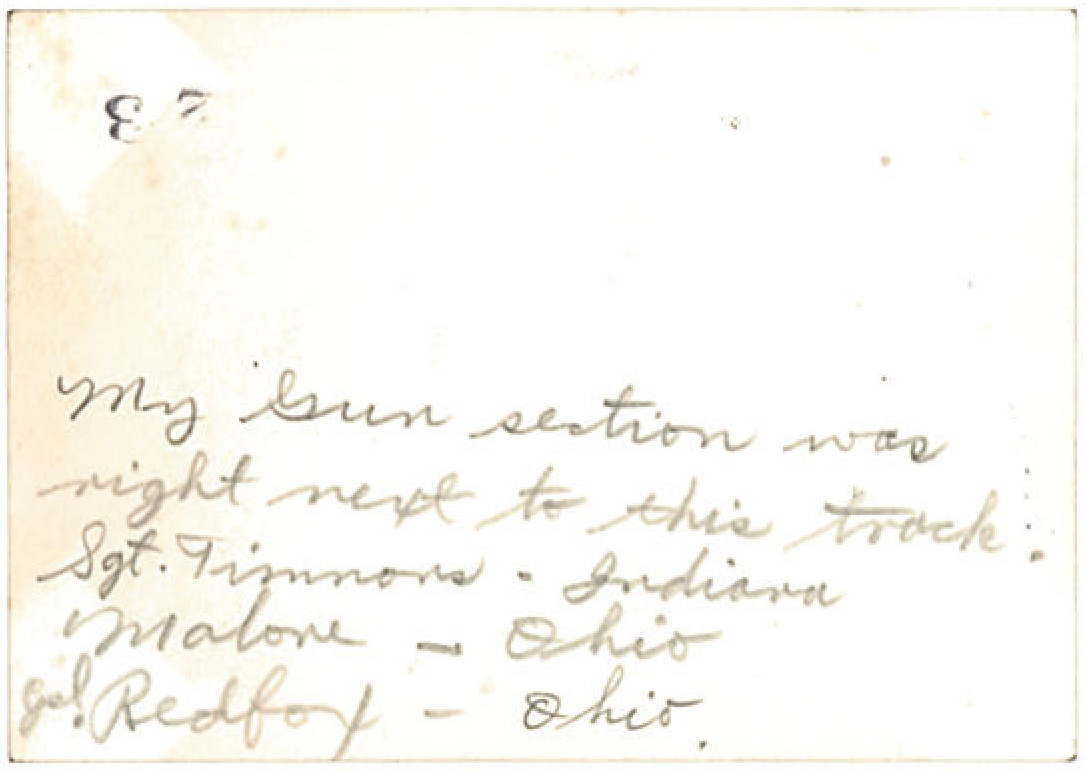 My Gun section was
right next to this track.
Sgt. Timmons - Indiana
Malone - Ohio
Redfox - Ohio.